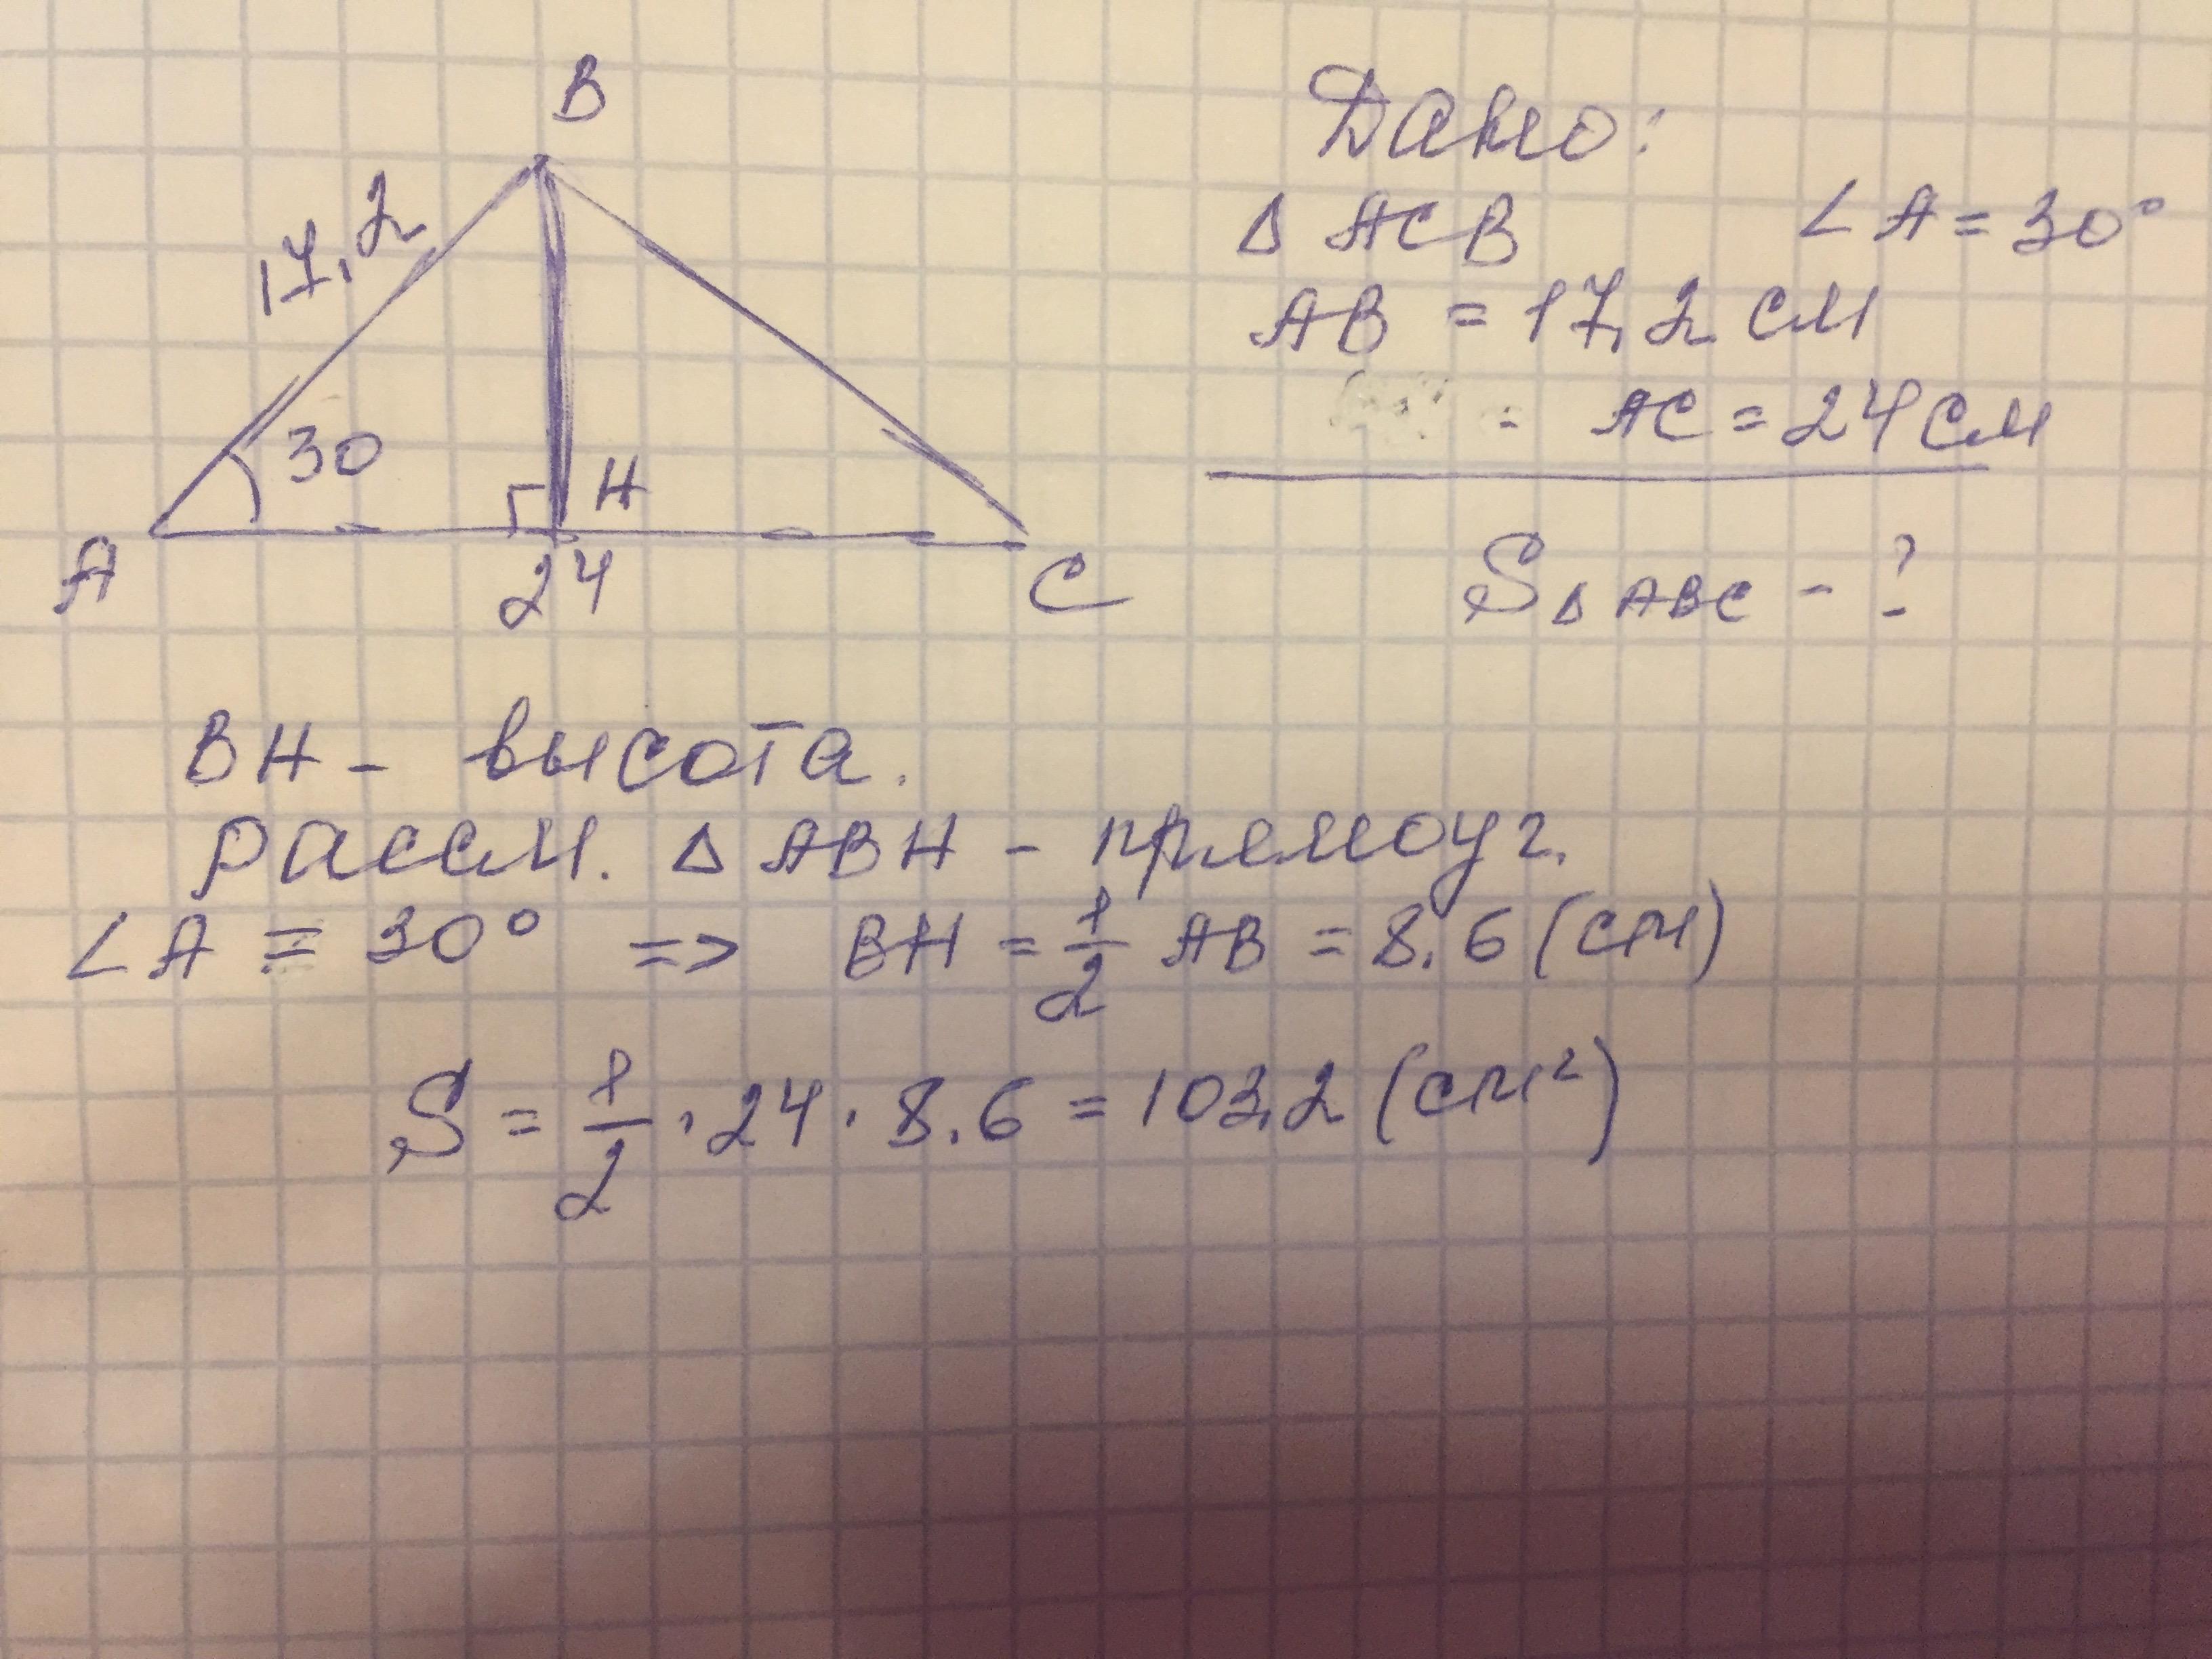 B
17,2
30
H
A
24
C
Дано:
Δ ACB ∠A = 30°
AB = 17,2 см
AC = 24 см
S Δ ABC - ?
BH - высота.
рассм. Δ ABH - прямоуг.
∠A = 30° => BH = 1/2 AB = 8.6 (см)
S = 1/2 · 24 · 8.6 = 103,2 (см²)